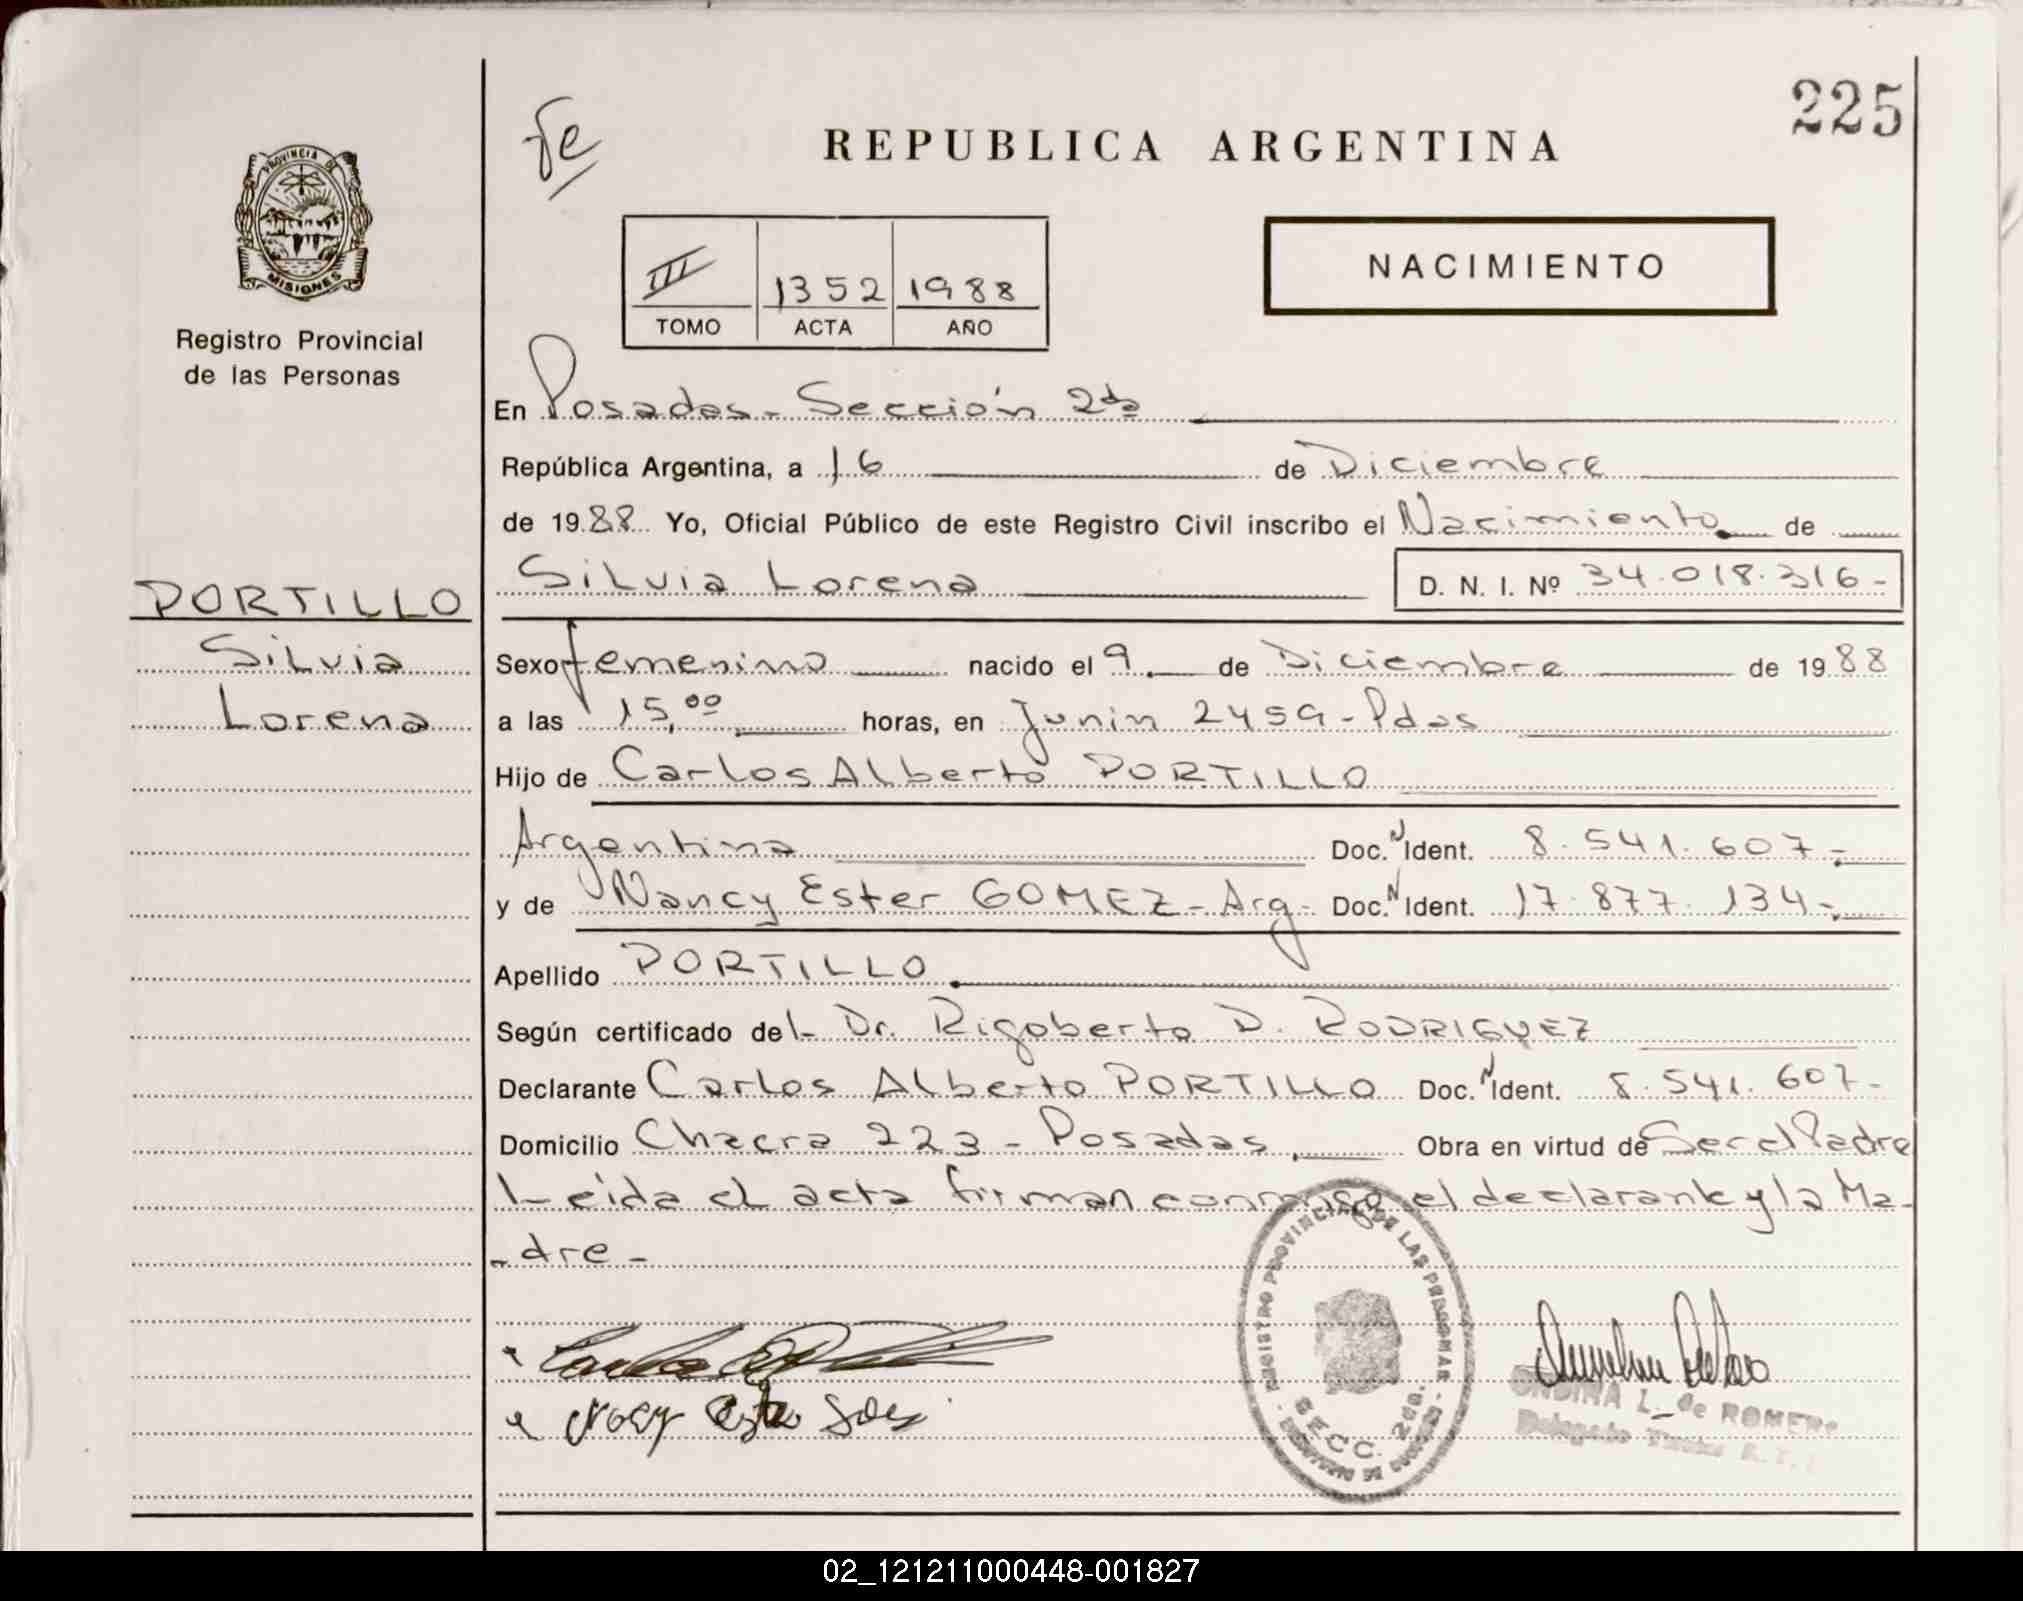 225
fe
REPUBLICA ARGENTINA
PROVINCIA DE
MISIONES
Registro Provincial
de las Personas
III 1352 1988
TOMO ACTA AÑO
NACIMIENTO
En Posadas - Sección 2da
República Argentina, a 16 de Diciembre
de 1988 Yo, Oficial Público de este Registro Civil inscribo el Nacimiento de
Silvia Lorena D. N. I. Nº 34.018.316-
PORTILLO
Silvia
Lorena
Sexo femenino nacido el 9 de Diciembre de 1988
a las 15,00 horas, en Junin 2459 - Pdas
Hijo de Carlos Alberto PORTILLO
Argentina Doc. N Ident. 8.541.607-
y de Nancy Ester GOMEZ - Arg- Doc. N Ident. 17.877.134-
Apellido PORTILLO
Según certificado del- Dr. Rigoberto D. RODRIGUEZ
Declarante Carlos Alberto PORTILLO Doc. N Ident. 8.541.607-
Domicilio Chacra 223 - Posadas Obra en virtud de Ser el Padre
Leida el acta firman conmigo el declarante y la Ma-
-dre-
REGISTRO PROVINCIAL DE LAS PERSONAS
SECC. 2da.
L. de ROMERO
02_121211000448-001827